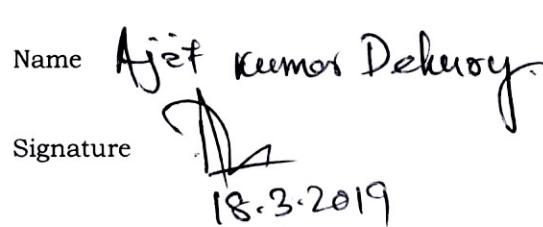 Name Ajit Kumar Dehury.
Signature
18.3.2019